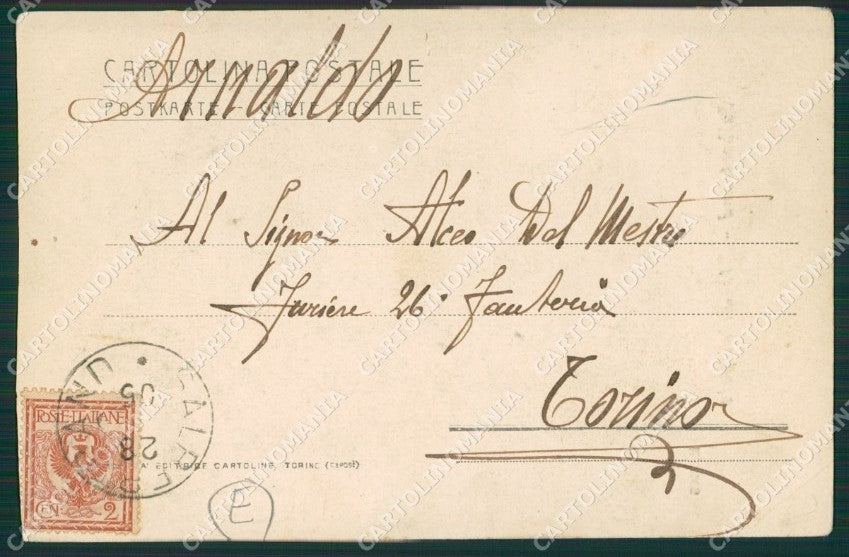 Arnaldo
CARTOLINA POSTALE
POSTKARTE - CARTE POSTALE
Al Signor Alceo Dal Mestre
Furiere 26° Fanteria
Torino
POSTE ITALIANE
CEN 2
05
28
EDITRICE CARTOLINE, TORINO (EXPOSÉ)
E
CARTOLINOMANIA